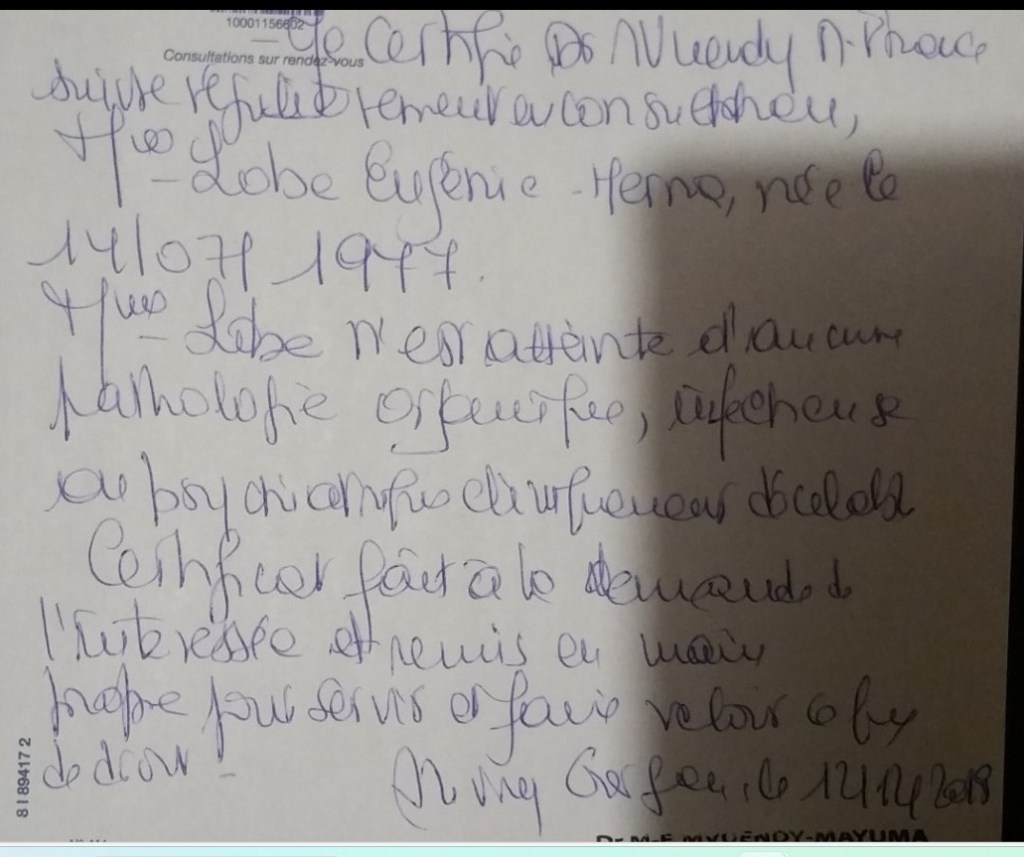 10001156602
Consultations sur rendez-vous
Je Certifie Dr MVuendy M. France
suivre régulièrement en consultation,
Mme Lobe Eugénie née le
14/07/1977.
Mme Lobe n'est atteinte d'aucune
pathologie organique, infectieuse
ou psychiatrique cliniquement décelable
Certificat fait à la demande de
l'intéressée et remis en main
propre pour servir et faire valoir
de droit
le 12/12/2018
81894172
Dr M-F MVUENDY-MAYUMA